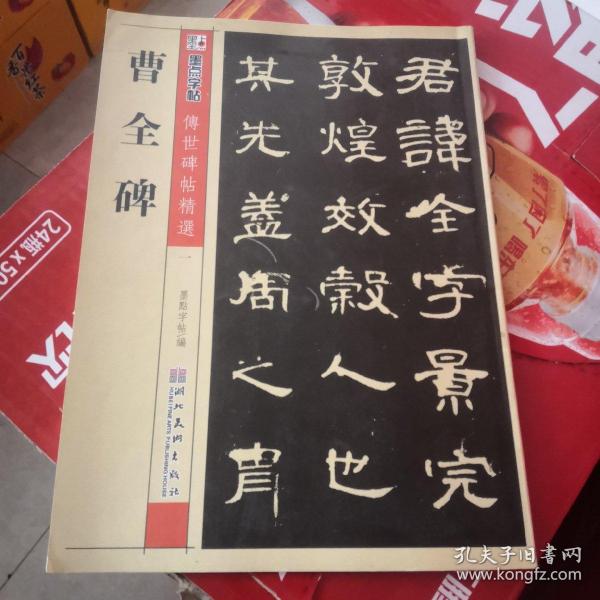 曹全碑
墨点字帖
傳世碑帖精選
一
墨點字帖/編
湖北美術出版社
HUBEI FINE ARTS PUBLISHING HOUSE
君諱全字景完
敦煌效穀人也
其先蓋周之胄
24瓶×50
孔夫子旧书网
www.kongfz.com